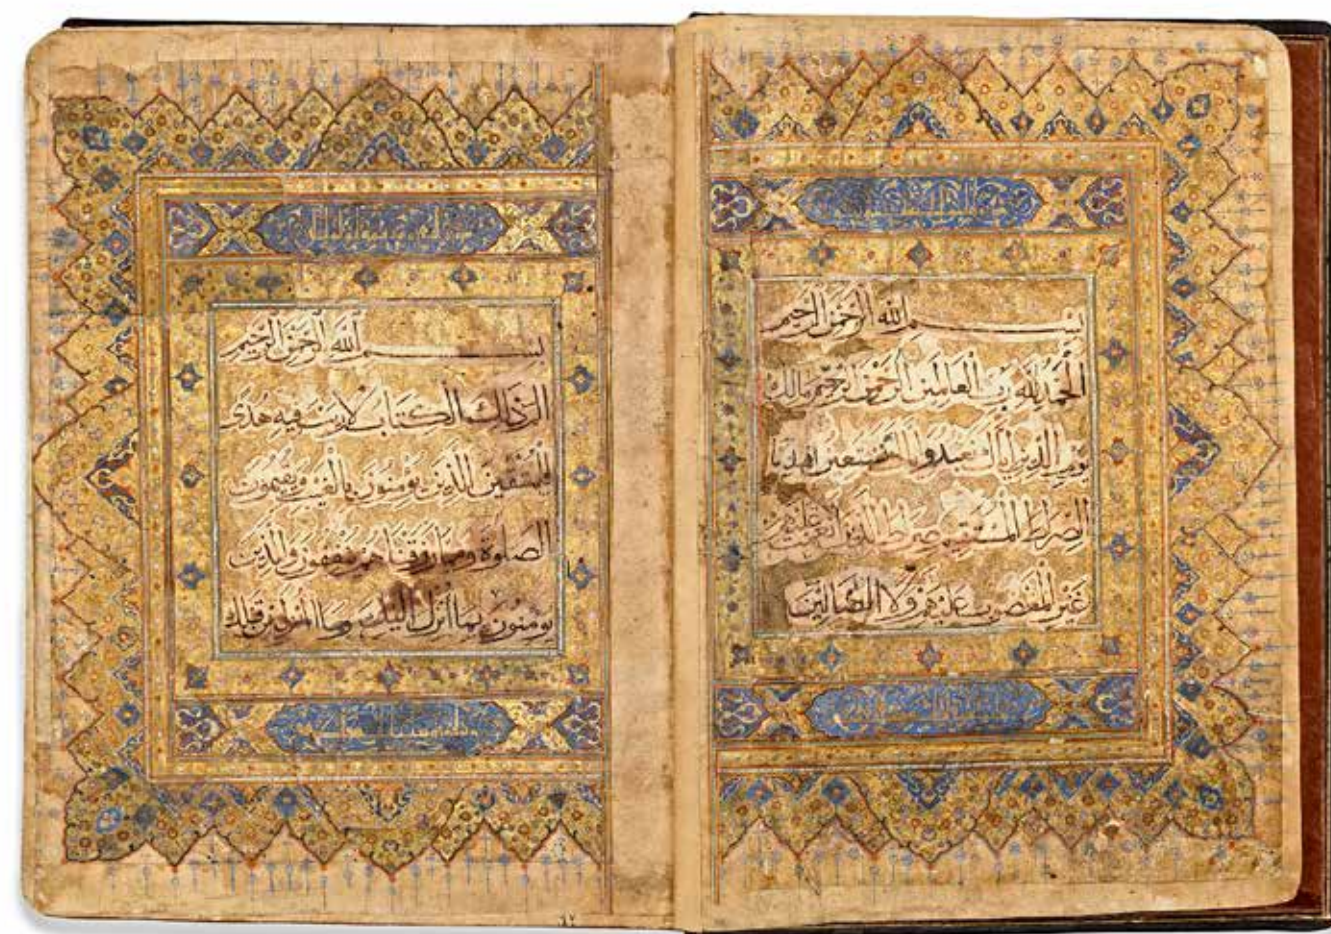 بسم الله الرحمن الرحيم
الحمد لله رب العالمين الرحمن الرحيم مالك
يوم الدين اياك نعبد وا نستعين اهدنا
الصراط المستقيم صراط الذين انعمت عليهم
غير المغضوب عليهم ولا الضالين
بسم الله الرحمن الرحيم
الم ذلك الكتاب لا ريب فيه هدى
للمتقين الذين يؤمنون بالغيب ويقيمون
الصلوة ومما رزقناهم ينفقون والذين
يومنون بما انزل اليك وما انزل من قبلك